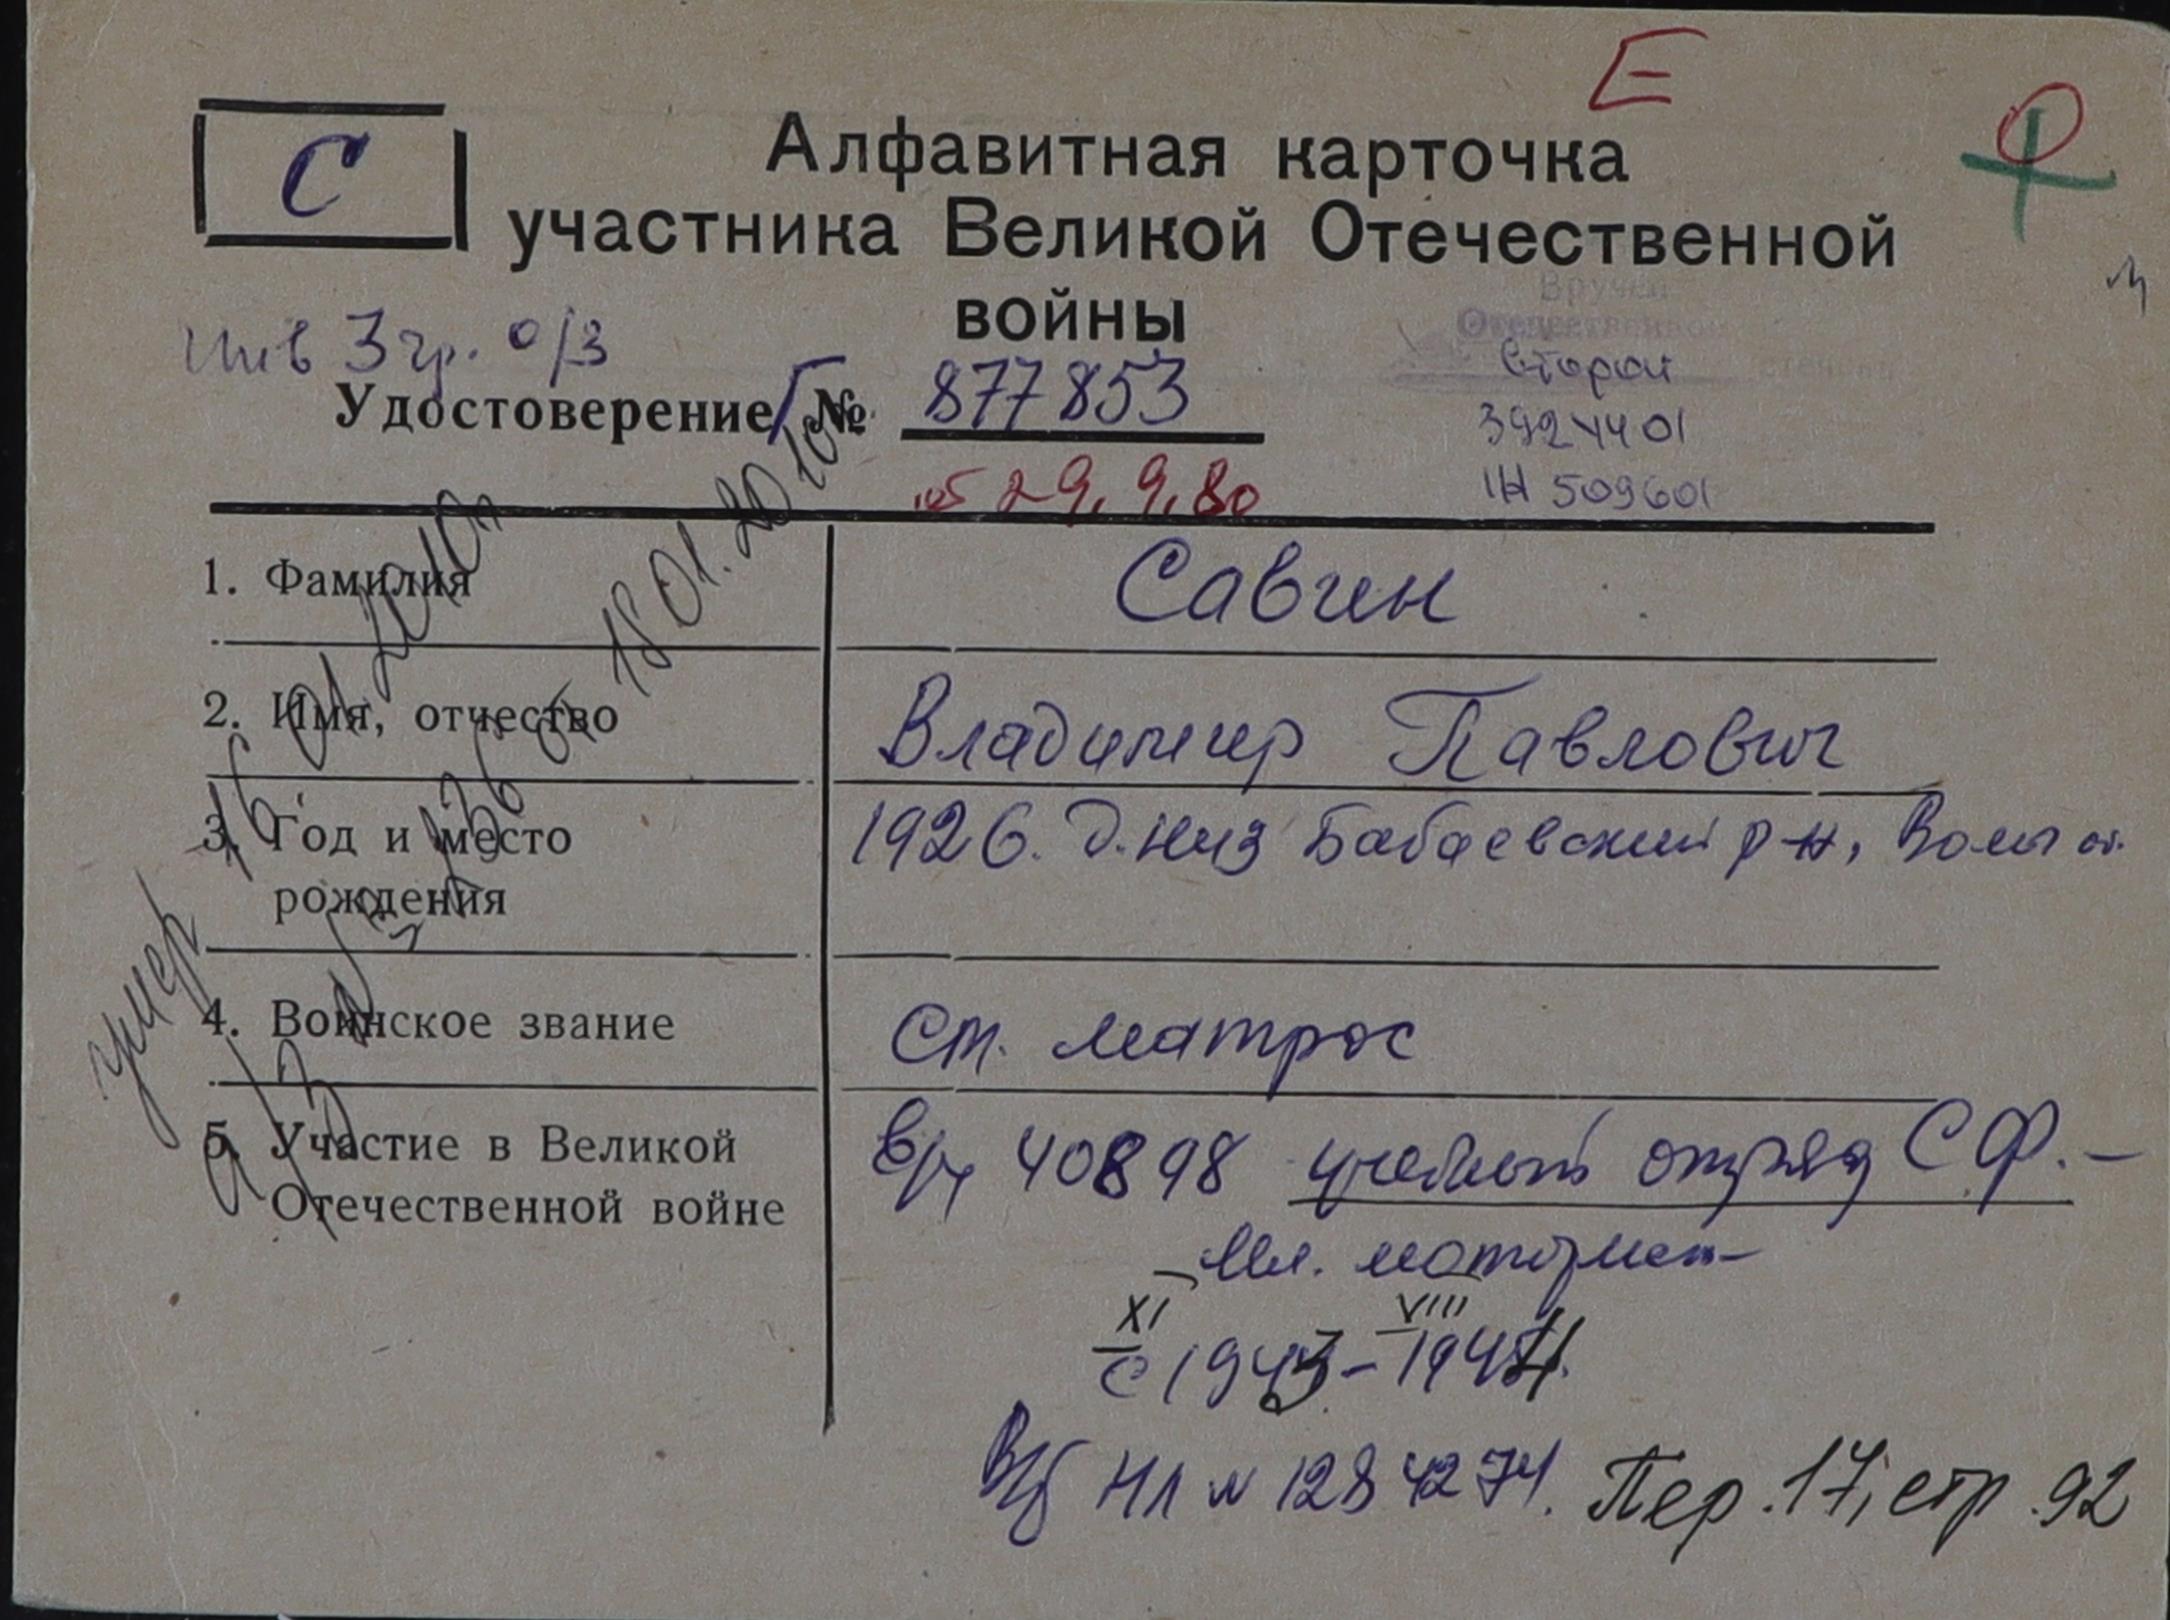 Е
С
Алфавитная карточка
участника Великой Отечественной
войны
Инв 3 гр. о/з
Вручен
Отечественной
второй степени
3924401
Удостоверение Г № 877853
1Н 509601
от 29.9.80
1. Фамилия Савин
2. Имя, отчество Владимир Павлович
3. Год и место 1926. д. Низ Бабаевский р-н, Волог
рождения
4. Воинское звание Ст. матрос
5. Участие в Великой в/ч 40898 учебный отряд СФ. –
Отечественной войне
Мл. моторист
XI VIII
с 1943 – 1944.
В/б НЛ № 1284274. Пер. 17, стр. 92
умер 16 01 2010г
от 18 01. 2010г